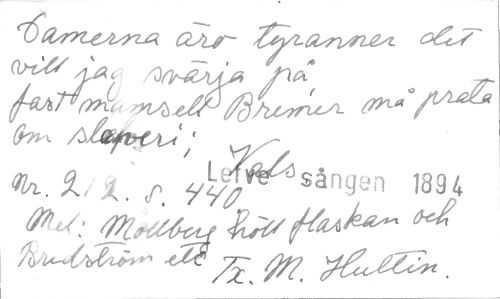 Damerna äro tyranner det
vill jag svärja på,
fast mamsell Bremer må prata
om slaveri;
Vals
Leive sången 1894
Nr. 212. s. 440
Mel: Mollberg höll flaskan och
Bredström etc
Tx. M. Hultin.